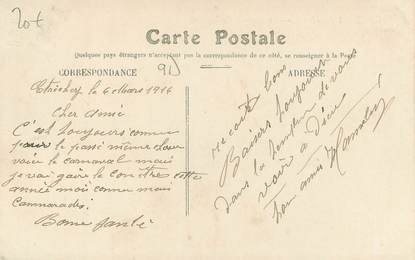 20€
Carte Postale
Quelques pays étrangers n'acceptant pas la correspondance de ce côté, se renseigner à la Poste
CORRESPONDANCE
91
ADRESSE
le 6 Mars 1914
Cher amie
C'est toujours comme
pour le passé même chose
voici le carnaval mais
je vai gaire le conètre cette
année mais comme mais
Cammarades
Bonne Santé
recoit bons
Baisers toujours
dans la de vous
voir a
ton amie